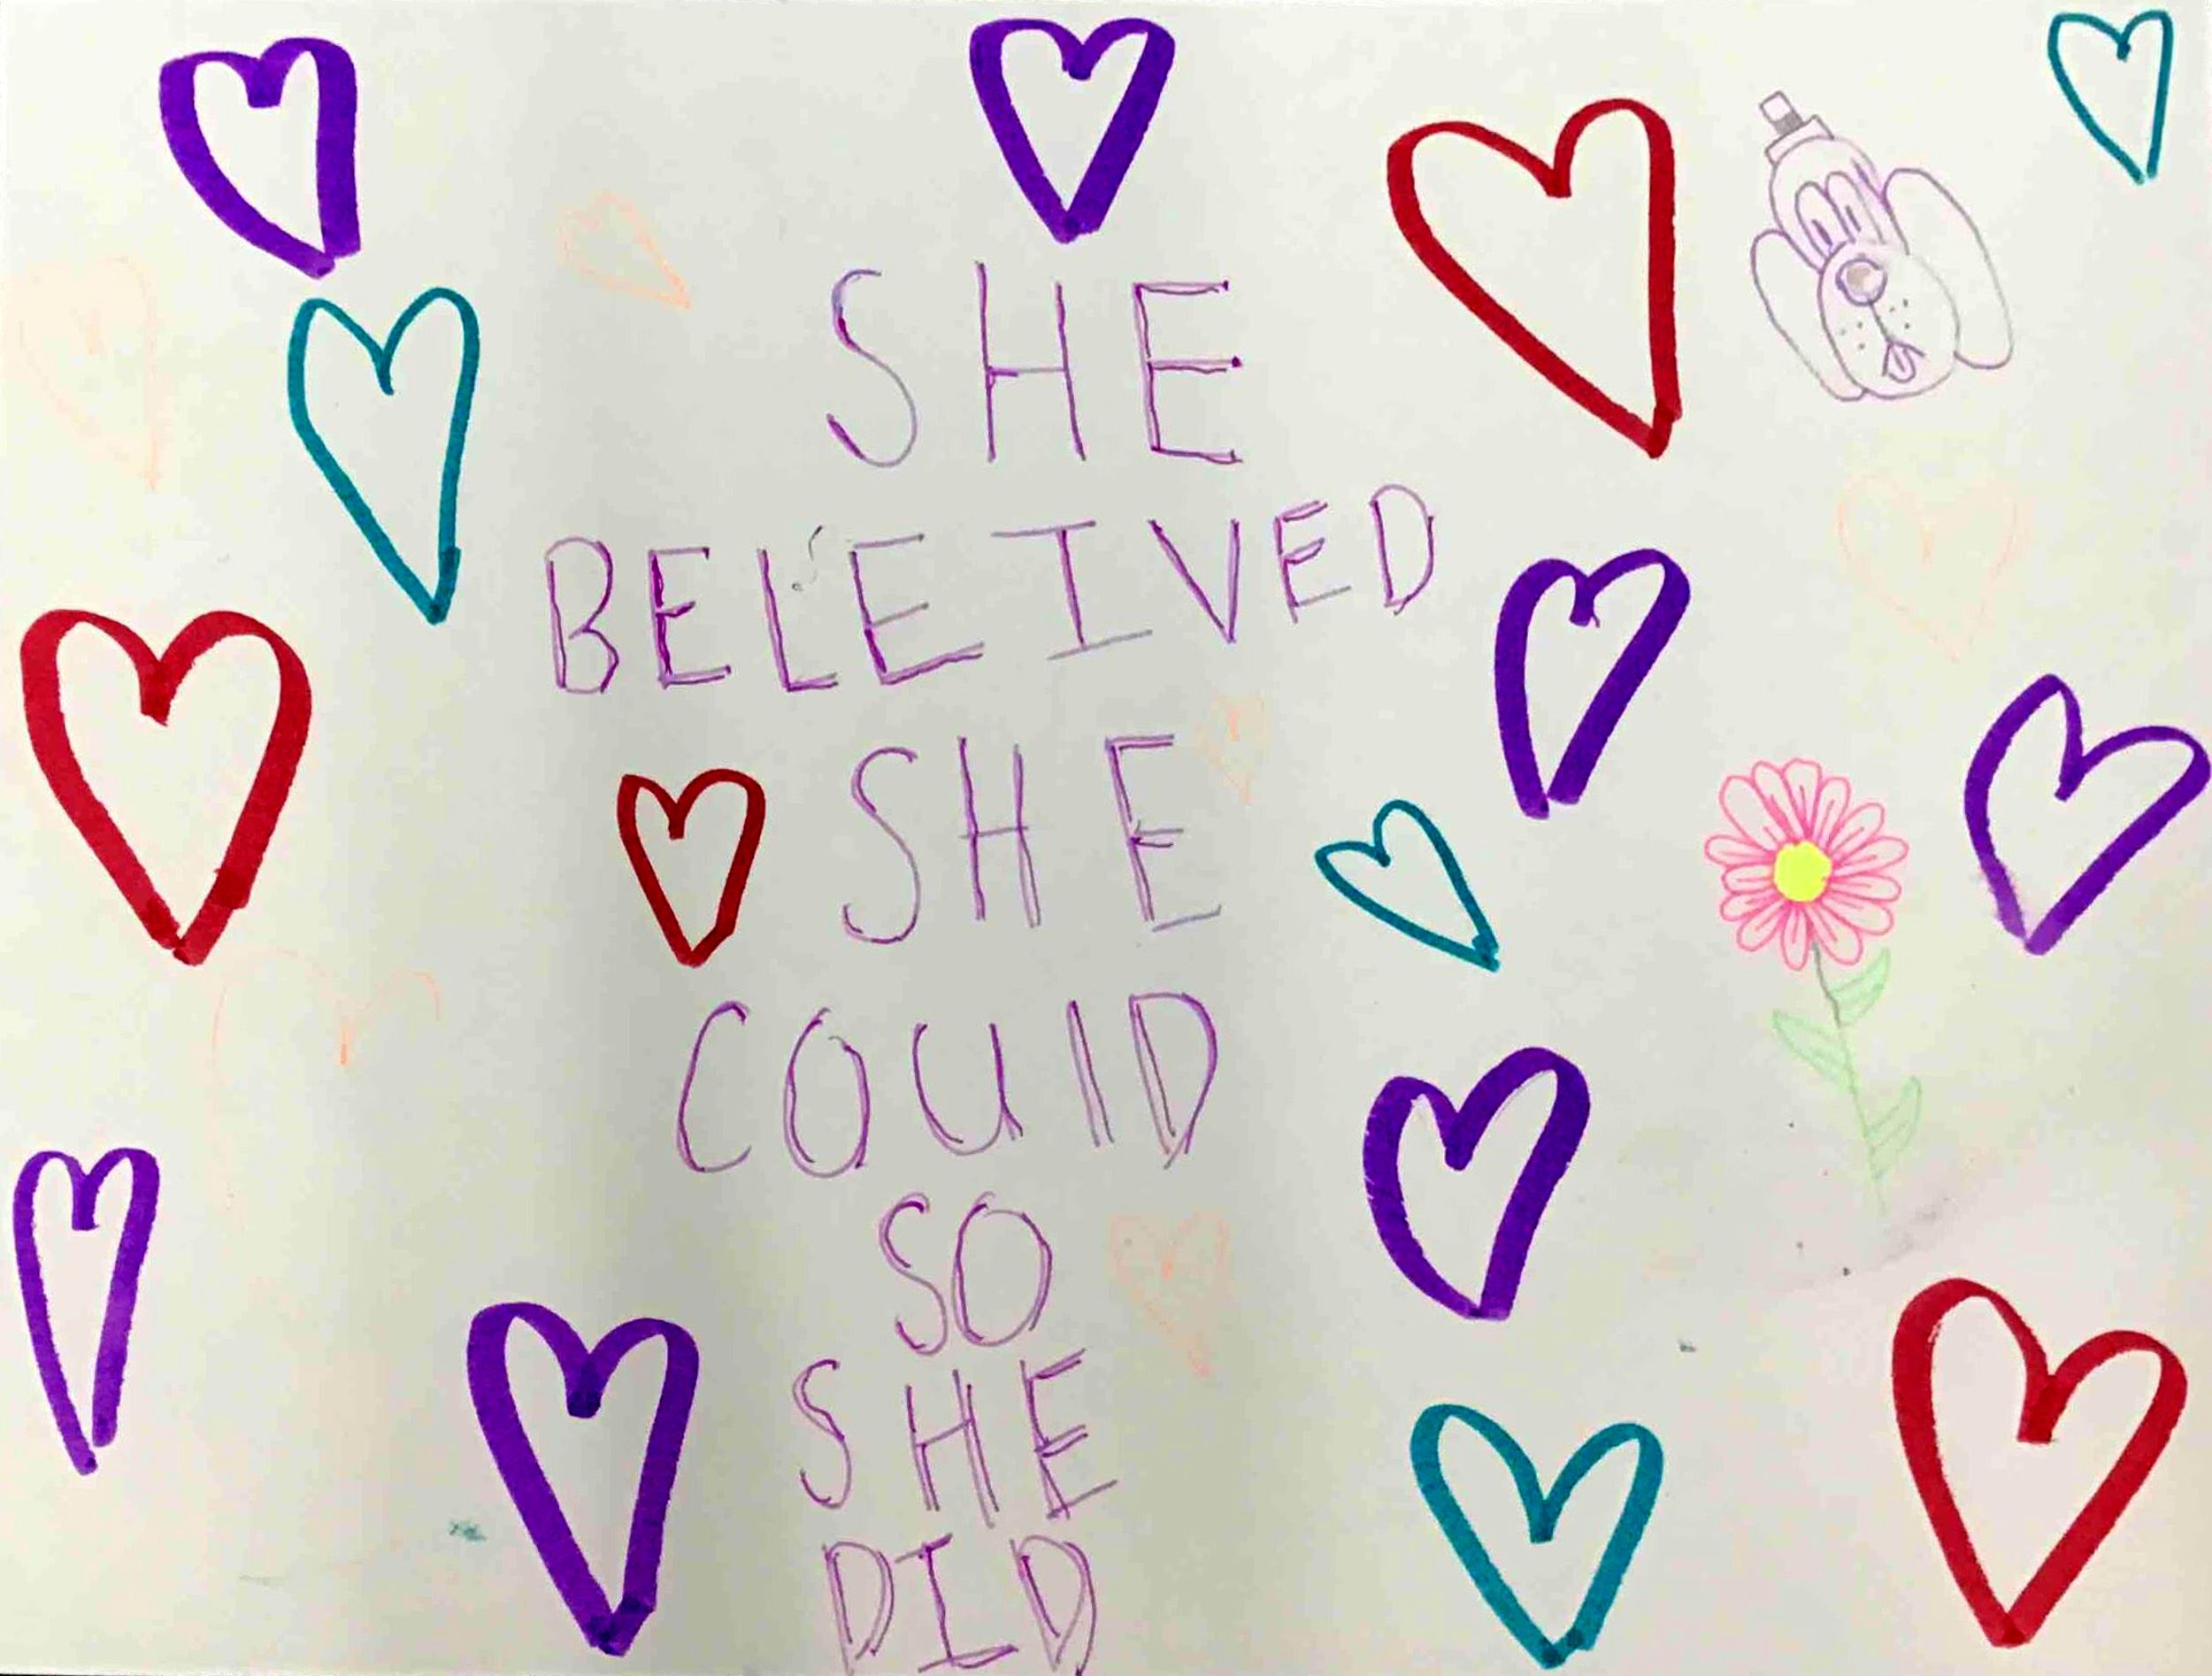 SHE
BELEIVED
SHE
COUlD
SO
SHE
DID